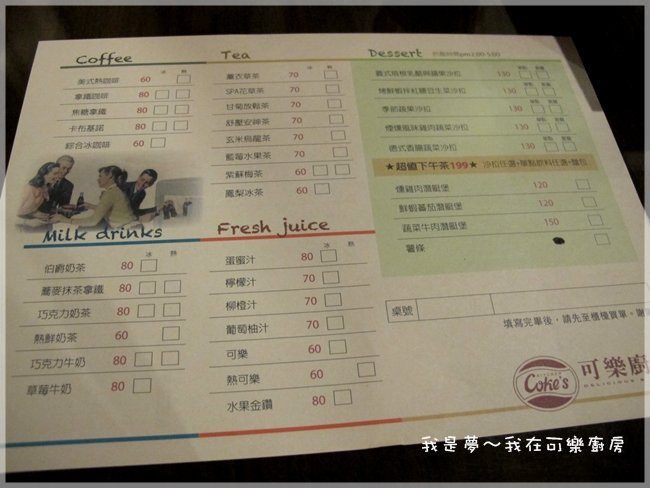 Coffee
冰 熱
美式熱咖啡 60
拿鐵咖啡 80
焦糖拿鐵 80
卡布基諾 80
綜合冰咖啡 60
Tea
冰 熱
薰衣草茶 70
SPA花草茶 70
甘菊放鬆茶 70
舒壓安神茶 70
玄米烏龍茶 70
藍莓水果茶 70
紫蘇梅茶 70
鳳梨冰茶 70
Dessert 供應時間pm2:00-5:00
單點 套餐
義式核桃乳酪與蘋果沙拉 130
烤鮮蝦拌紅腰豆生菜沙拉 130
季節蔬果沙拉 130
煙燻風味雞肉蔬菜沙拉 130
德式香腸蔬菜沙拉 130
★超值下午茶199★ 沙拉任選+單點飲料任選+麵包
燻雞肉潛艇堡 120
鮮蝦蕃茄潛艇堡 120
蔬菜牛肉潛艇堡 150
薯條
Milk drinks
冰 熱
伯爵奶茶 80
蕎麥抹茶拿鐵 80
巧克力奶茶 80
熱鮮奶茶 60
巧克力牛奶 80
草莓牛奶 80
Fresh juice
冰 熱
蛋蜜汁 80
檸檬汁 70
柳橙汁 70
葡萄柚汁 70
可樂 60
熱可樂 60
水果金鑽 80
桌號
填寫完畢後，請先至櫃檯買單。謝
KITCHEN
Coke's
可樂廚
DELICIOUS
我是夢～我在可樂廚房